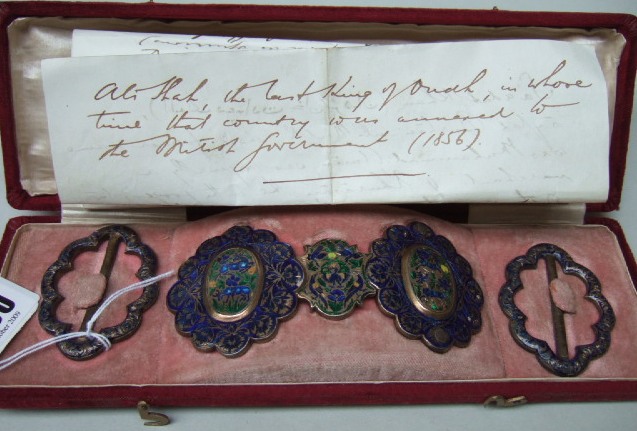 Ali Shah, the last King of Oudh, in whose
time that country was annexed to
the British Government (1856).
2009